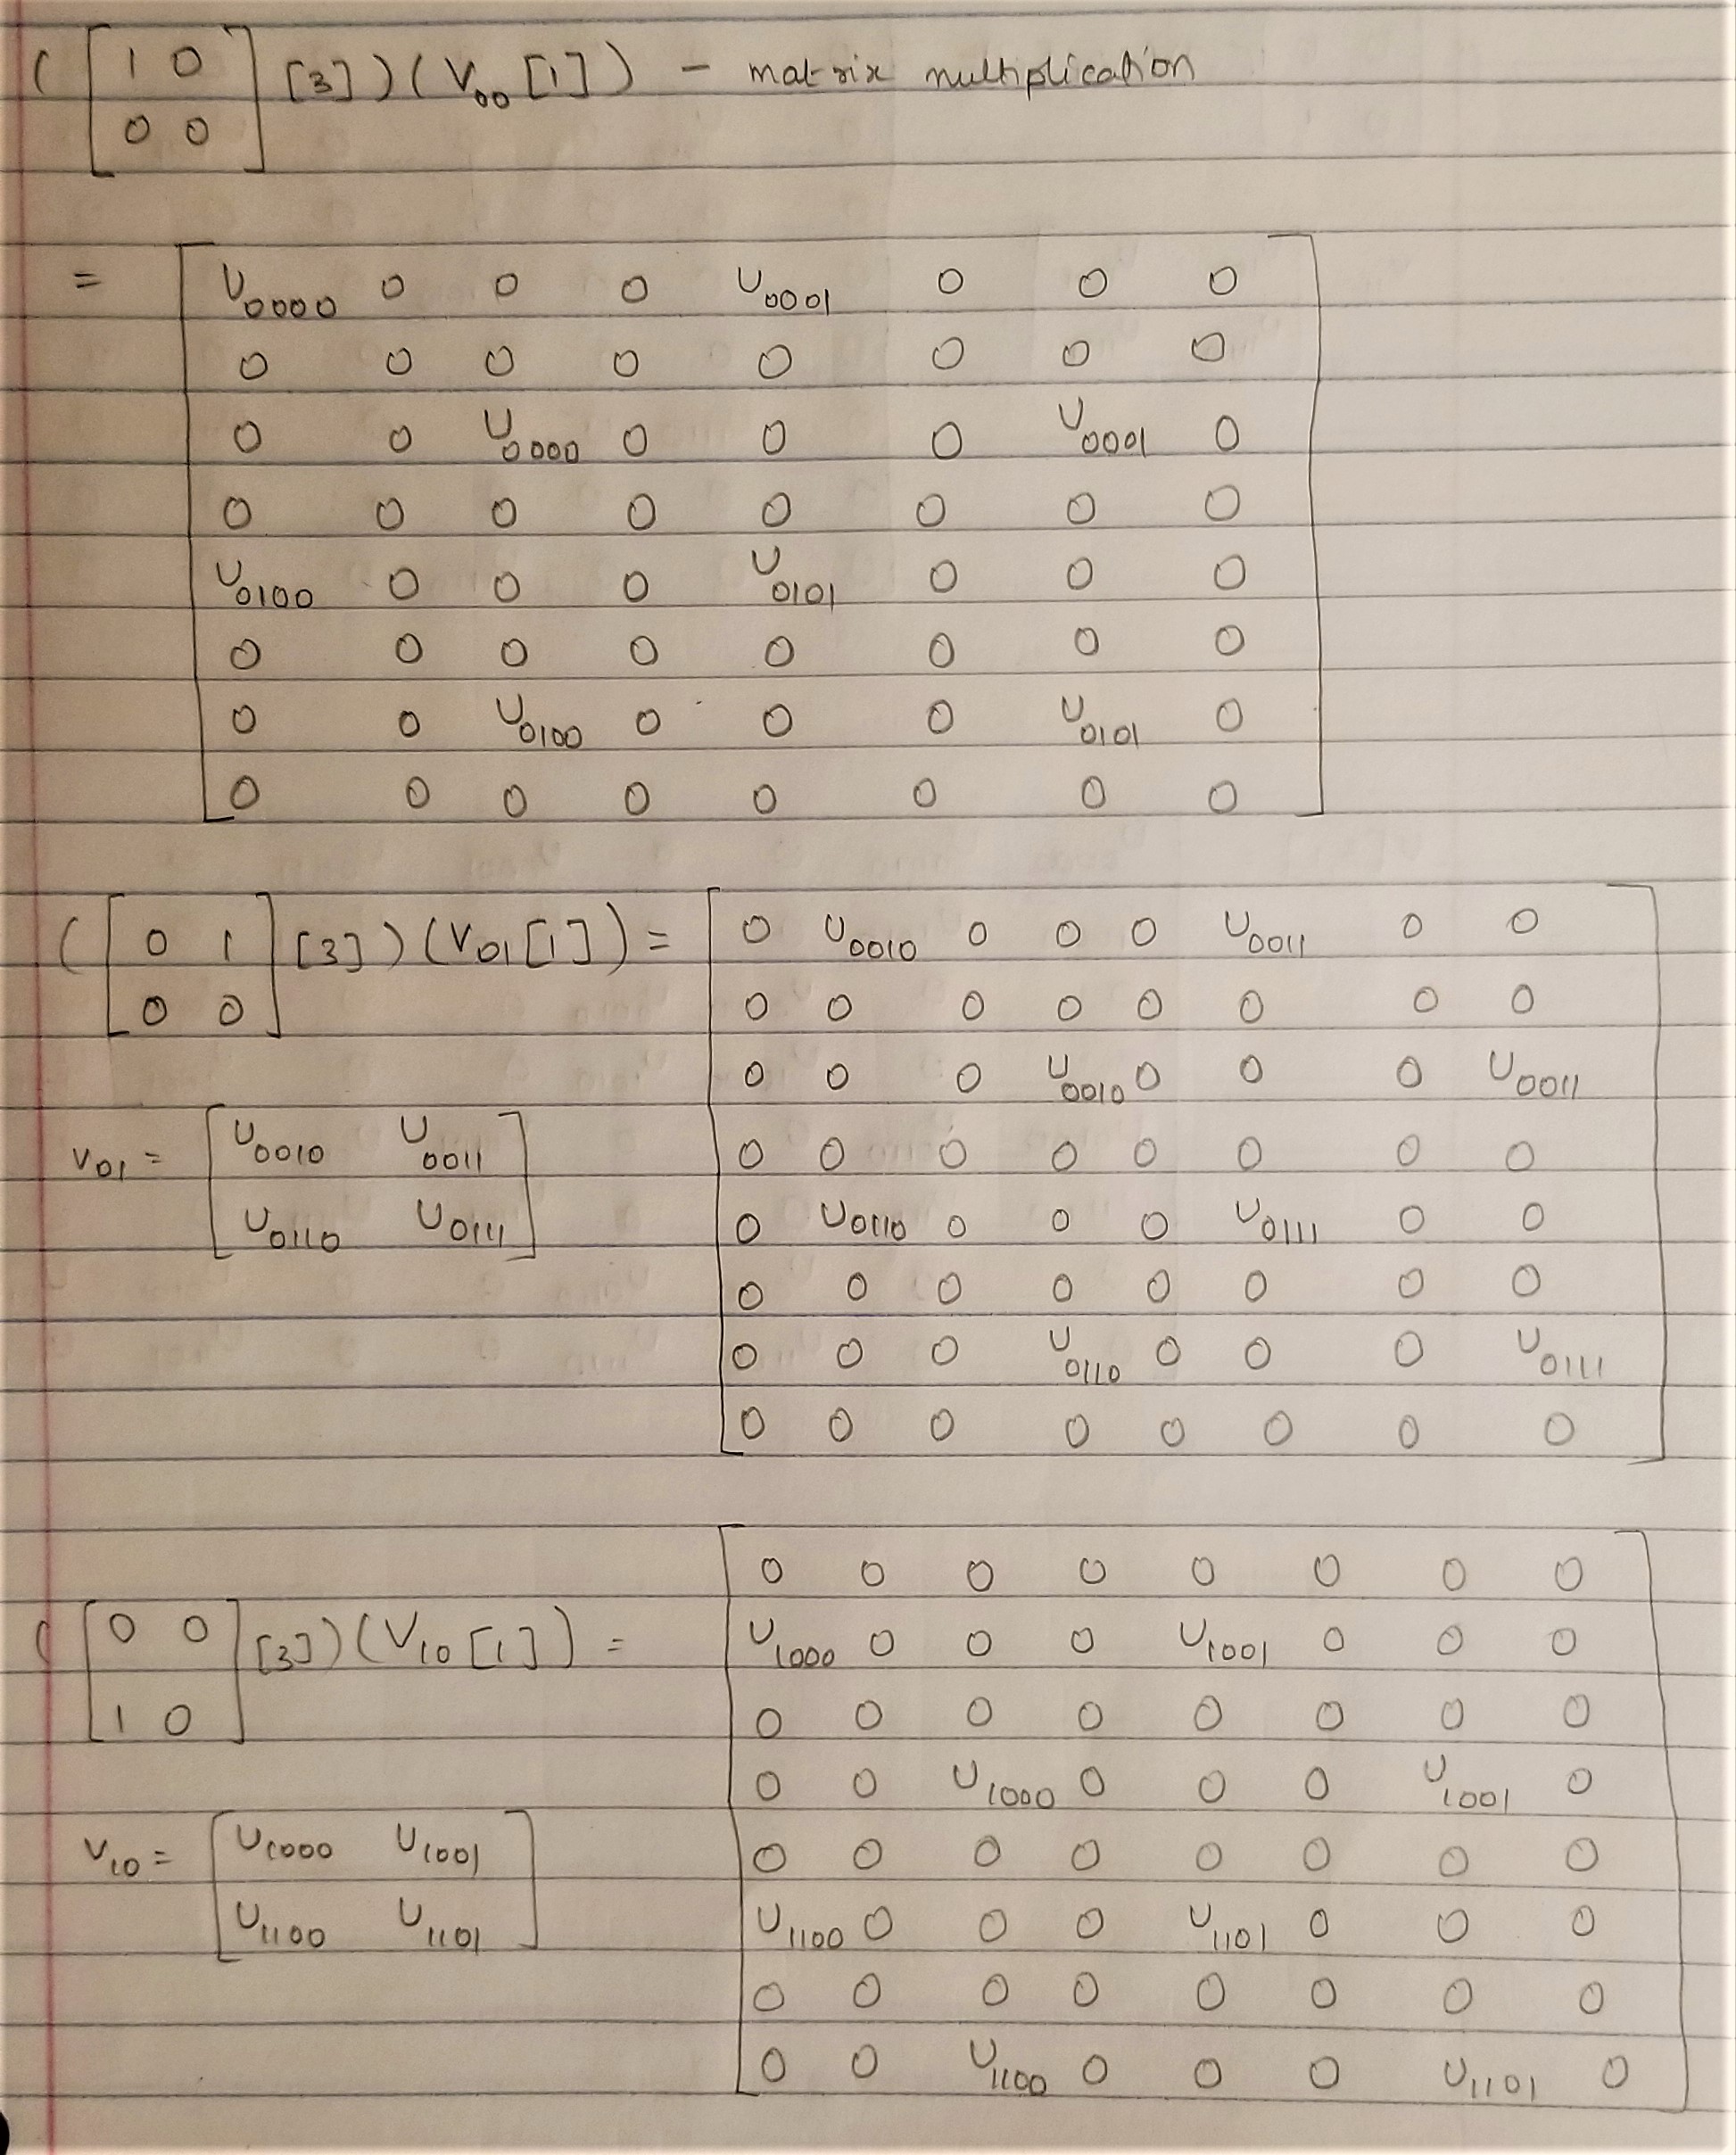 ( [ 1 0 ] [3] ) ( V00 [1] ) - matrix multiplication
0 0
= [ U0000 0 0 0 U0001 0 0 0 ]
0 0 0 0 0 0 0 0
0 0 U0000 0 0 0 U0001 0
0 0 0 0 0 0 0 0
U0100 0 0 0 U0101 0 0 0
0 0 0 0 0 0 0 0
0 0 U0100 0 0 0 U0101 0
0 0 0 0 0 0 0 0
( [ 0 1 ] [3] ) ( V01 [1] ) = [ 0 U0010 0 0 0 U0011 0 0 ]
0 0 0 0 0 0 0 0 0 0
0 0 0 U0010 0 0 0 U0011
V01 = [ U0010 U0011 ] 0 0 0 0 0 0 0 0
U0110 U0111 0 U0110 0 0 0 U0111 0 0
0 0 0 0 0 0 0 0
0 0 0 U0110 0 0 0 U0111
0 0 0 0 0 0 0 0
0 0 0 0 0 0 0 0
( [ 0 0 ] [3] ) ( V10 [1] ) = [ U1000 0 0 0 U1001 0 0 0 ]
1 0 0 0 0 0 0 0 0 0
0 0 U1000 0 0 0 U1001 0
V10 = [ U1000 U1001 ] 0 0 0 0 0 0 0 0
U1100 U1101 U1100 0 0 0 U1101 0 0 0
0 0 0 0 0 0 0 0
0 0 U1100 0 0 0 U1101 0